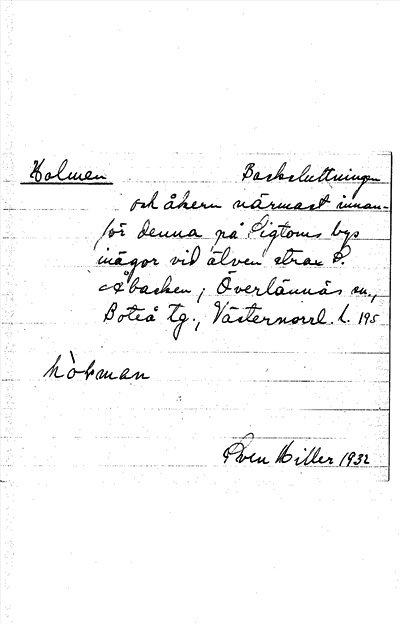 Holmen Backsluttningen
och åkern närmast innan-
för denna på Sigtoms bys
inägor vid älven strax S.
Åbacken, Överlännäs sn.,
Boteå tg., Västernorrl. l. 195
hòlman
Sven Hiller 1932